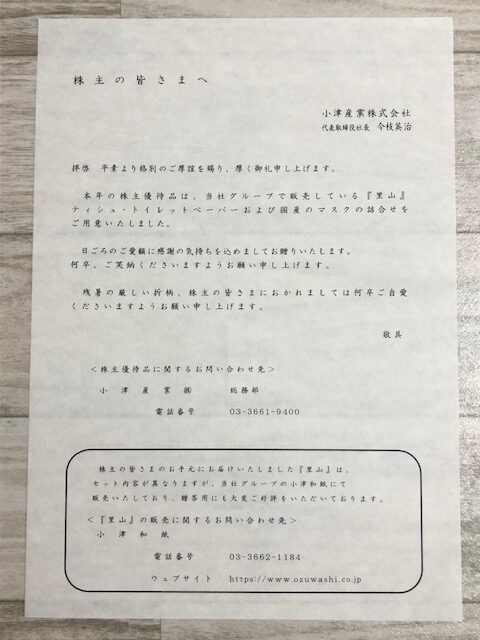 株主の皆さまへ
小津産業株式会社
代表取締役社長 今枝英治
拝啓 平素より格別のご厚誼を賜り、厚く御礼申し上げます。
本年の株主優待品は、当社グループで販売している『里山』
ティシュ・トイレットペーパーおよび国産のマスクの詰合せを
ご用意いたしました。
日ごろのご愛顧に感謝の気持ちを込めましてお贈りいたします。
何卒、ご笑納くださいますようお願い申し上げます。
残暑の厳しい折柄、株主の皆さまにおかれましては何卒ご自愛
くださいますようお願い申し上げます。
敬具
<株主優待品に関するお問い合わせ先>
小津産業㈱ 総務部
電話番号 03-3661-9400
株主の皆さまのお手元にお届けいたしました『里山』は、
セット内容が異なりますが、当社グループの小津和紙にて
販売いたしており、贈答用にも大変ご好評をいただいております。
<『里山』の販売に関するお問い合わせ先>
小津和紙
電話番号 03-3662-1184
ウェブサイト https://www.ozuwashi.co.jp